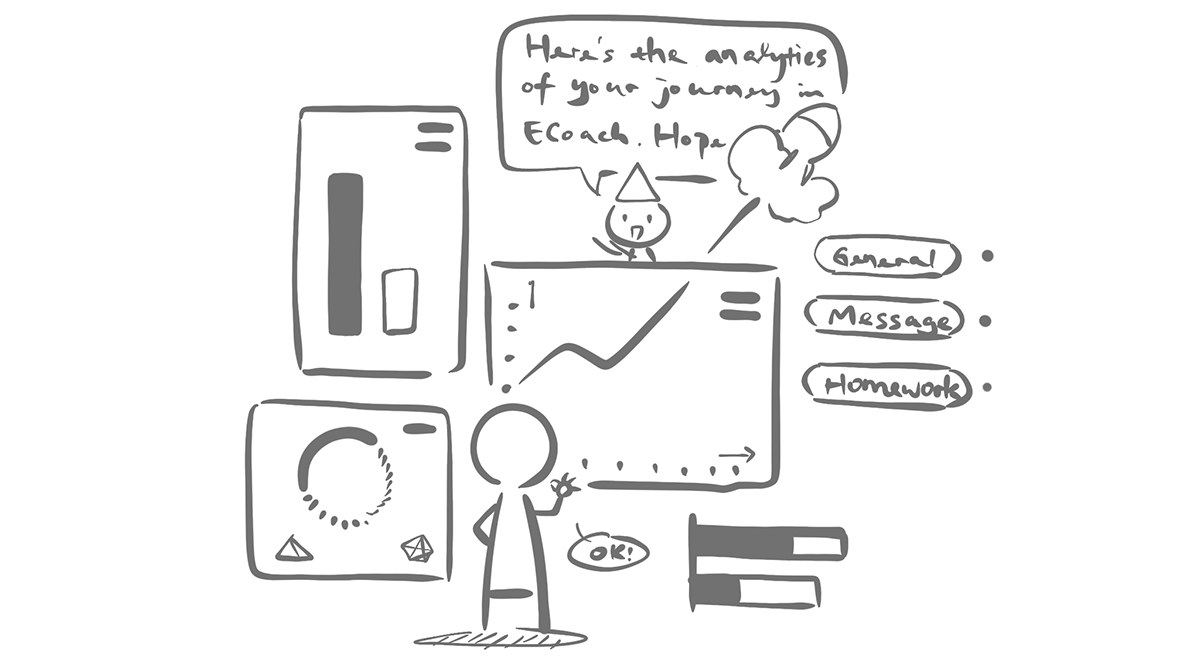 Here's the analytics
of your journey in
ECoach. Hope
General
Message
Homework
OK!